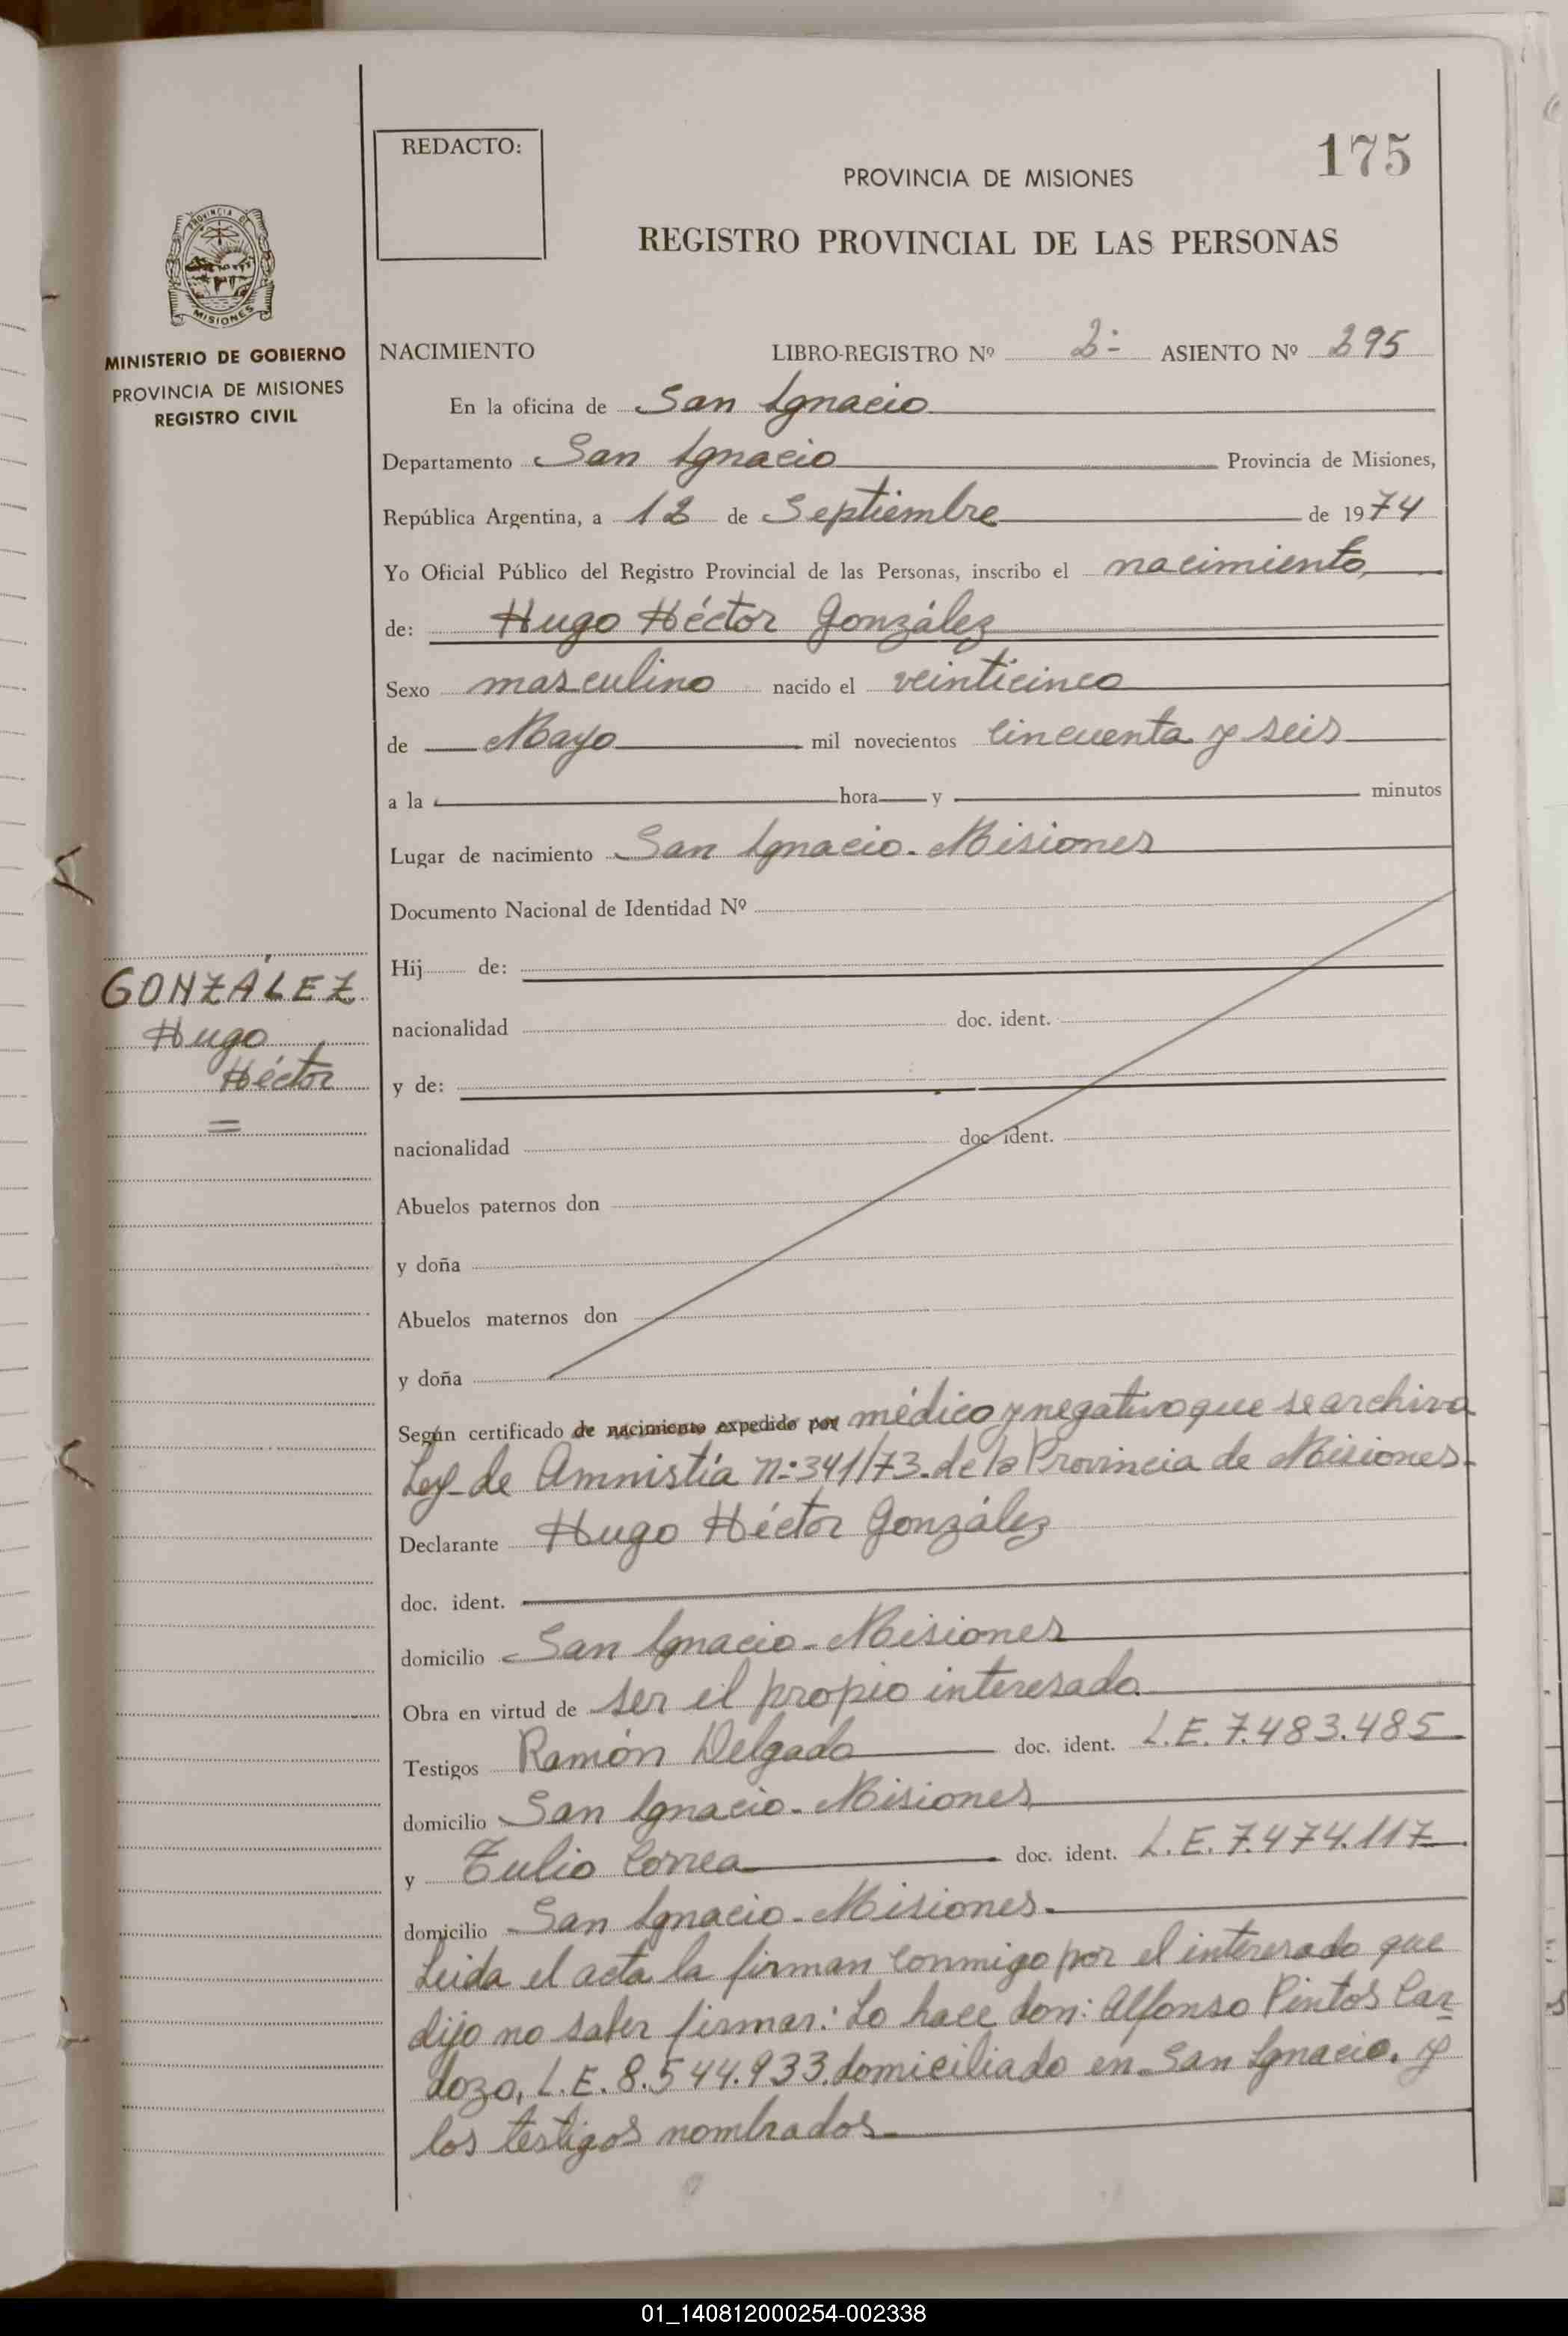 REDACTO:
175
PROVINCIA DE MISIONES
REGISTRO PROVINCIAL DE LAS PERSONAS
PROVINCIA DE
MISIONES
MINISTERIO DE GOBIERNO
PROVINCIA DE MISIONES
REGISTRO CIVIL
NACIMIENTO LIBRO-REGISTRO Nº 2- ASIENTO Nº 295
En la oficina de San Ignacio
Departamento San Ignacio Provincia de Misiones,
República Argentina, a 12 de Septiembre de 1974
Yo Oficial Público del Registro Provincial de las Personas, inscribo el nacimiento
de: Hugo Héctor González
Sexo masculino nacido el veinticinco
de Mayo mil novecientos cincuenta y seis
a la hora y minutos
Lugar de nacimiento San Ignacio-Misiones
Documento Nacional de Identidad Nº
Hij de:
GONZÁLEZ
Hugo
Héctor
=
nacionalidad doc. ident.
y de:
nacionalidad doc. ident.
Abuelos paternos don
y doña
Abuelos maternos don
y doña
Según certificado de nacimiento expedido por médico y negativo que se archiva
Ley de Amnistía n:341/73.de la Provincia de Misiones-
Declarante Hugo Héctor González
doc. ident.
domicilio San Ignacio-Misiones
Obra en virtud de ser el propio interesado
Testigos Ramón Delgado doc. ident. L.E. 7.483.485
domicilio San Ignacio-Misiones
y Tulio Correa doc. ident. L.E. 7.474.117
domicilio San Ignacio-Misiones.
Leida el acta la firman conmigo por el interesado que
dijo no saber firmar: Lo hace don: Alfonso Pintos Car-
dozo, L.E. 8.544.933.domiciliado en San Ignacio. y
los testigos nombrados
01_140812000254-002338